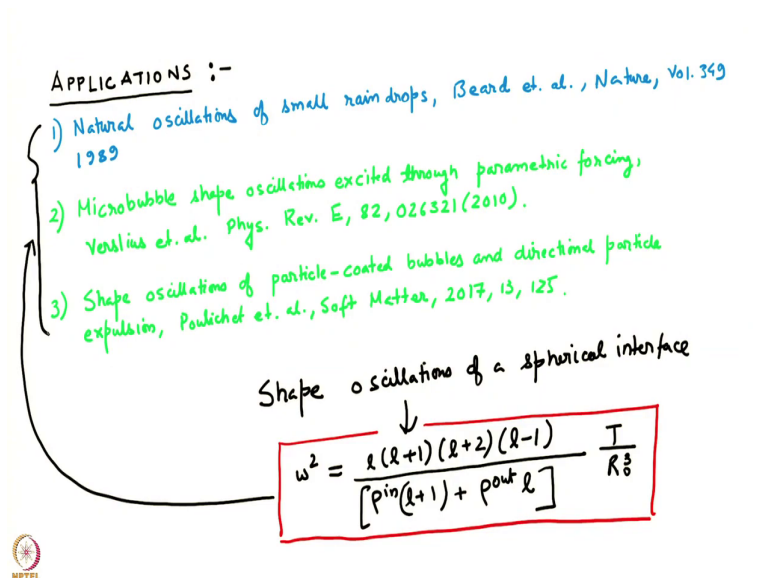 APPLICATIONS :-
1) Natural oscillations of small raindrops, Beard et. al., Nature, Vol. 349
1989
2) Microbubble shape oscillations excited through parametric forcing,
Verslius et. al. Phys. Rev. E, 82, 026321 (2010).
3) Shape oscillations of particle-coated bubbles and directional particle
expulsion, Poulichet et. al., Soft Matter, 2017, 13, 125.
Shape oscillations of a spherical interface
ω² = l(l+1)(l+2)(l-1) / [ρⁱⁿ(l+1) + ρᵒᵘᵗ l] T / R₀³
NPTEL